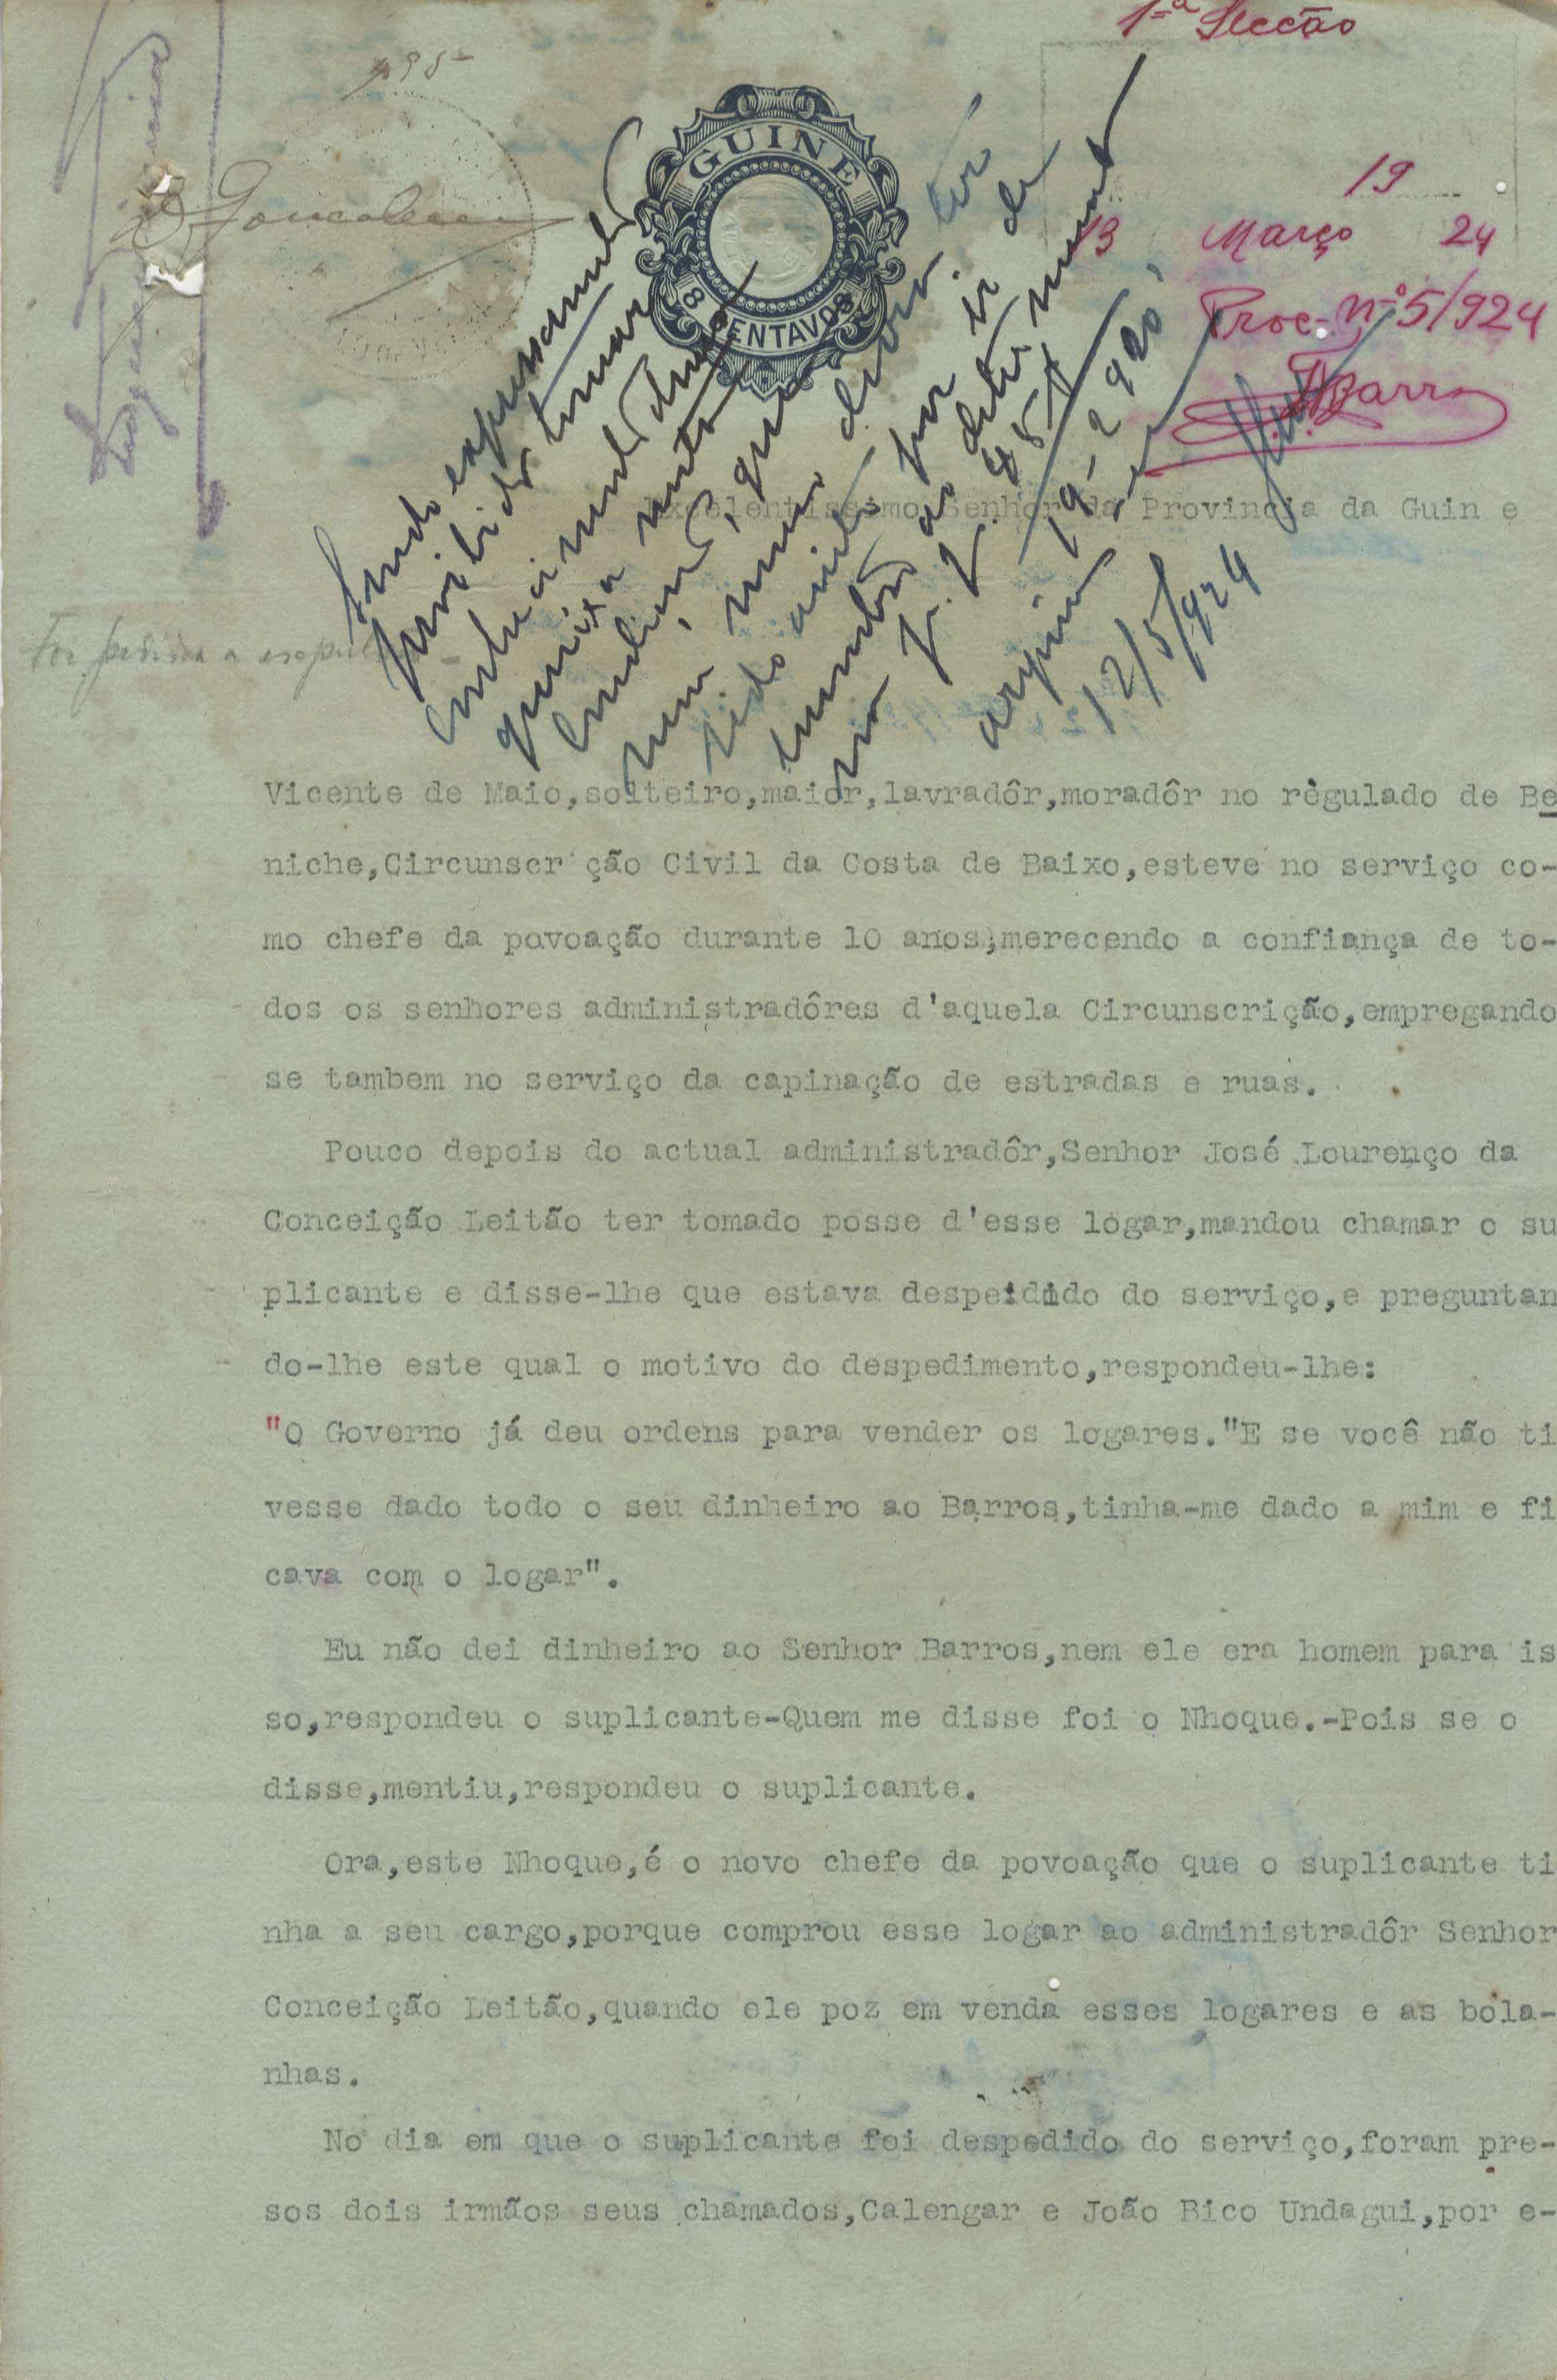 1ª Secção
GUINE
8 CENTAVOS 8
19
13 Março 24
Proc. nº 5/924
Barros
Excelentissimo Senhor da Provincia da Guin e
Sendo expressamente
prohibido tomar
conhecimento d'uma
queixa
que
nem mesmo devera ter
sido por ir de
ao determinado
no 451
19-2-920,
12/5/924
Foi pedida a
Vicente de Maio,solteiro,maior,lavradôr,moradôr no règulado de Be
niche,Circunscr ção Civil da Costa de Baixo,esteve no serviço co-
mo chefe da povoação durante 10 anos,merecendo a confiança de to-
dos os senhores administradôres d'aquela Circunscrição,empregando
se tambem no serviço da capinação de estradas e ruas.
Pouco depois do actual administradôr,Senhor José Lourenço da
Conceição Leitão ter tomado posse d'esse lógar,mandou chamar o su
plicante e disse-lhe que estava despedido do serviço,e preguntan
do-lhe este qual o motivo do despedimento,respondeu-lhe:
"O Governo já deu ordens para vender os logares."E se você não ti
vesse dado todo o seu dinheiro ao Barros,tinha-me dado a mim e fi
cava com o logar".
Eu não dei dinheiro ao Senhor Barros,nem ele era homem para is
so,respondeu o suplicante-Quem me disse foi o Nhoque.-Pois se o
disse,mentiu,respondeu o suplicante.
Ora,este Nhoque,é o novo chefe da povoação que o suplicante ti
nha a seu cargo,porque comprou esse logar ao administradôr Senhor
Conceição Leitão,quando ele poz em venda esses logares e as bola-
nhas.
No dia em que o suplicante foi despedido do serviço,foram pre-
sos dois irmãos seus chamados,Calengar e João Bico Undagui,por e-